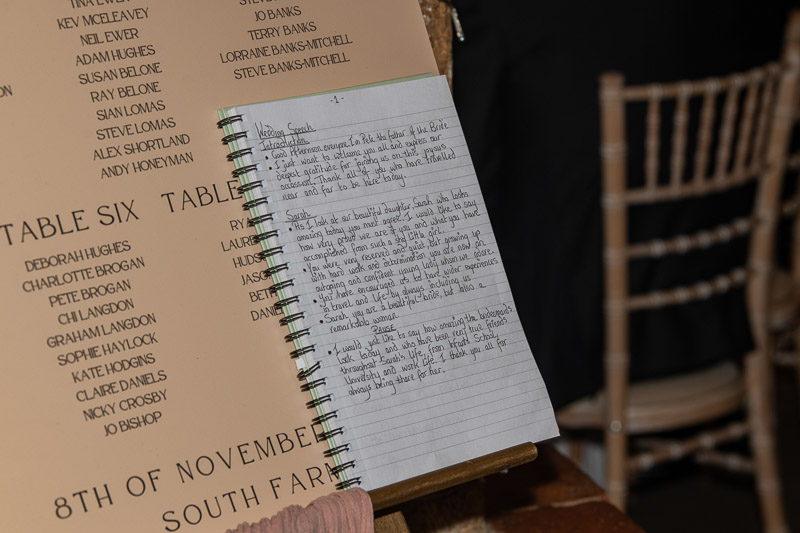 KEV MCELEAVEY
NEIL EWER
ADAM HUGHES
SUSAN BELONE
RAY BELONE
SIAN LOMAS
STEVE LOMAS
ALEX SHORTLAND
ANDY HONEYMAN
JO BANKS
TERRY BANKS
LORRAINE BANKS-MITCHELL
STEVE BANKS-MITCHELL
TABLE SIX
DEBORAH HUGHES
CHARLOTTE BROGAN
PETE BROGAN
CHI LANGDON
GRAHAM LANGDON
SOPHIE HAYLOCK
KATE HODGINS
CLAIRE DANIELS
NICKY CROSBY
JO BISHOP
TABLE
8TH OF NOVEMBER
SOUTH FARM
-1-
Wedding Speech
Introduction
• Good Afternoon everyone I'm Pete the father of the Bride
• I just want to welcome you all and express our
deepest gratitude for joining us on this joyous
occassion. Thank all of you who have travelled
near and far to be here today.
Sarah
• As I look at our beautiful daughter Sarah who looks
amazing today you must agree. I would like to say
how very proud we are of you and what you have
accomplished from such a shy little girl.
• You were very reserved and quiet but growing up
with hard work and determination you are now an
outgoing and confident young lady whom we adore.
• You have encouraged us to have wider experiences
in travel and life by always including us.
• Sarah you are a beautiful bride, but also a
remarkable woman.
Pause
• I would just like to say how amazing the bridesmaids
look today and who have been very true friends
throughout Sarah's life, from Infants School,
University and work life. I thank you all for
always being there for her.